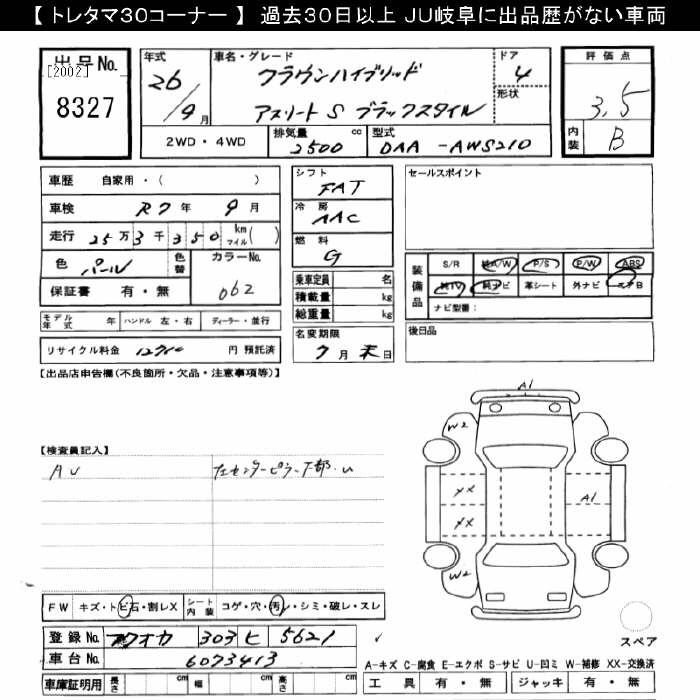 【 トレタマ30コーナー 】 過去30日以上 JU岐阜に出品歴がない車両
出品No.
[2002]
8327
年式 26/9月
車名・グレード クラウンハイブリッド
アスリートS ブラックスタイル
ドア 4
形状
評価点 3.5
内装 B
2WD・4WD 排気量 2500 cc 型式 DAA -AWS210
車歴 自家用・( )
車検 R7年 9月
走行 25万3千350 km マイル( )
色 パール 色替 カラーNo. 062
保証書 有・無
シフト FAT
冷房 AAC
燃料 G
乗車定員 名
積載量 kg
総重量 kg
名変期限 7月末日
セールスポイント
装備品 S/R 純A/W P/S P/W ABS
純TV 純ナビ 革シート 外ナビ エアB
ナビ型番:
後日品
モデル年式 年 ハンドル 左・右 ディーラー・並行
リサイクル料金 円 預託済
【出品店申告欄(不良箇所・欠品・注意事項等)】
【検査員記入】
AU 左センターピラー下部.u
A1
W2
XX
A1
XX
W2
スペア
FW キズ・トビ石・割レX シート内装 コゲ・穴・汚レ・シミ・破レ・スレ
登録No. フクオカ 303 ヒ 5621
車台No. 6073413
車庫証明用 長さ cm 幅 cm 高さ cm
A-キズ C-腐食 E-エクボ S-サビ U-凹ミ W-補修 XX-交換済
工具 有・無 ジャッキ 有・無